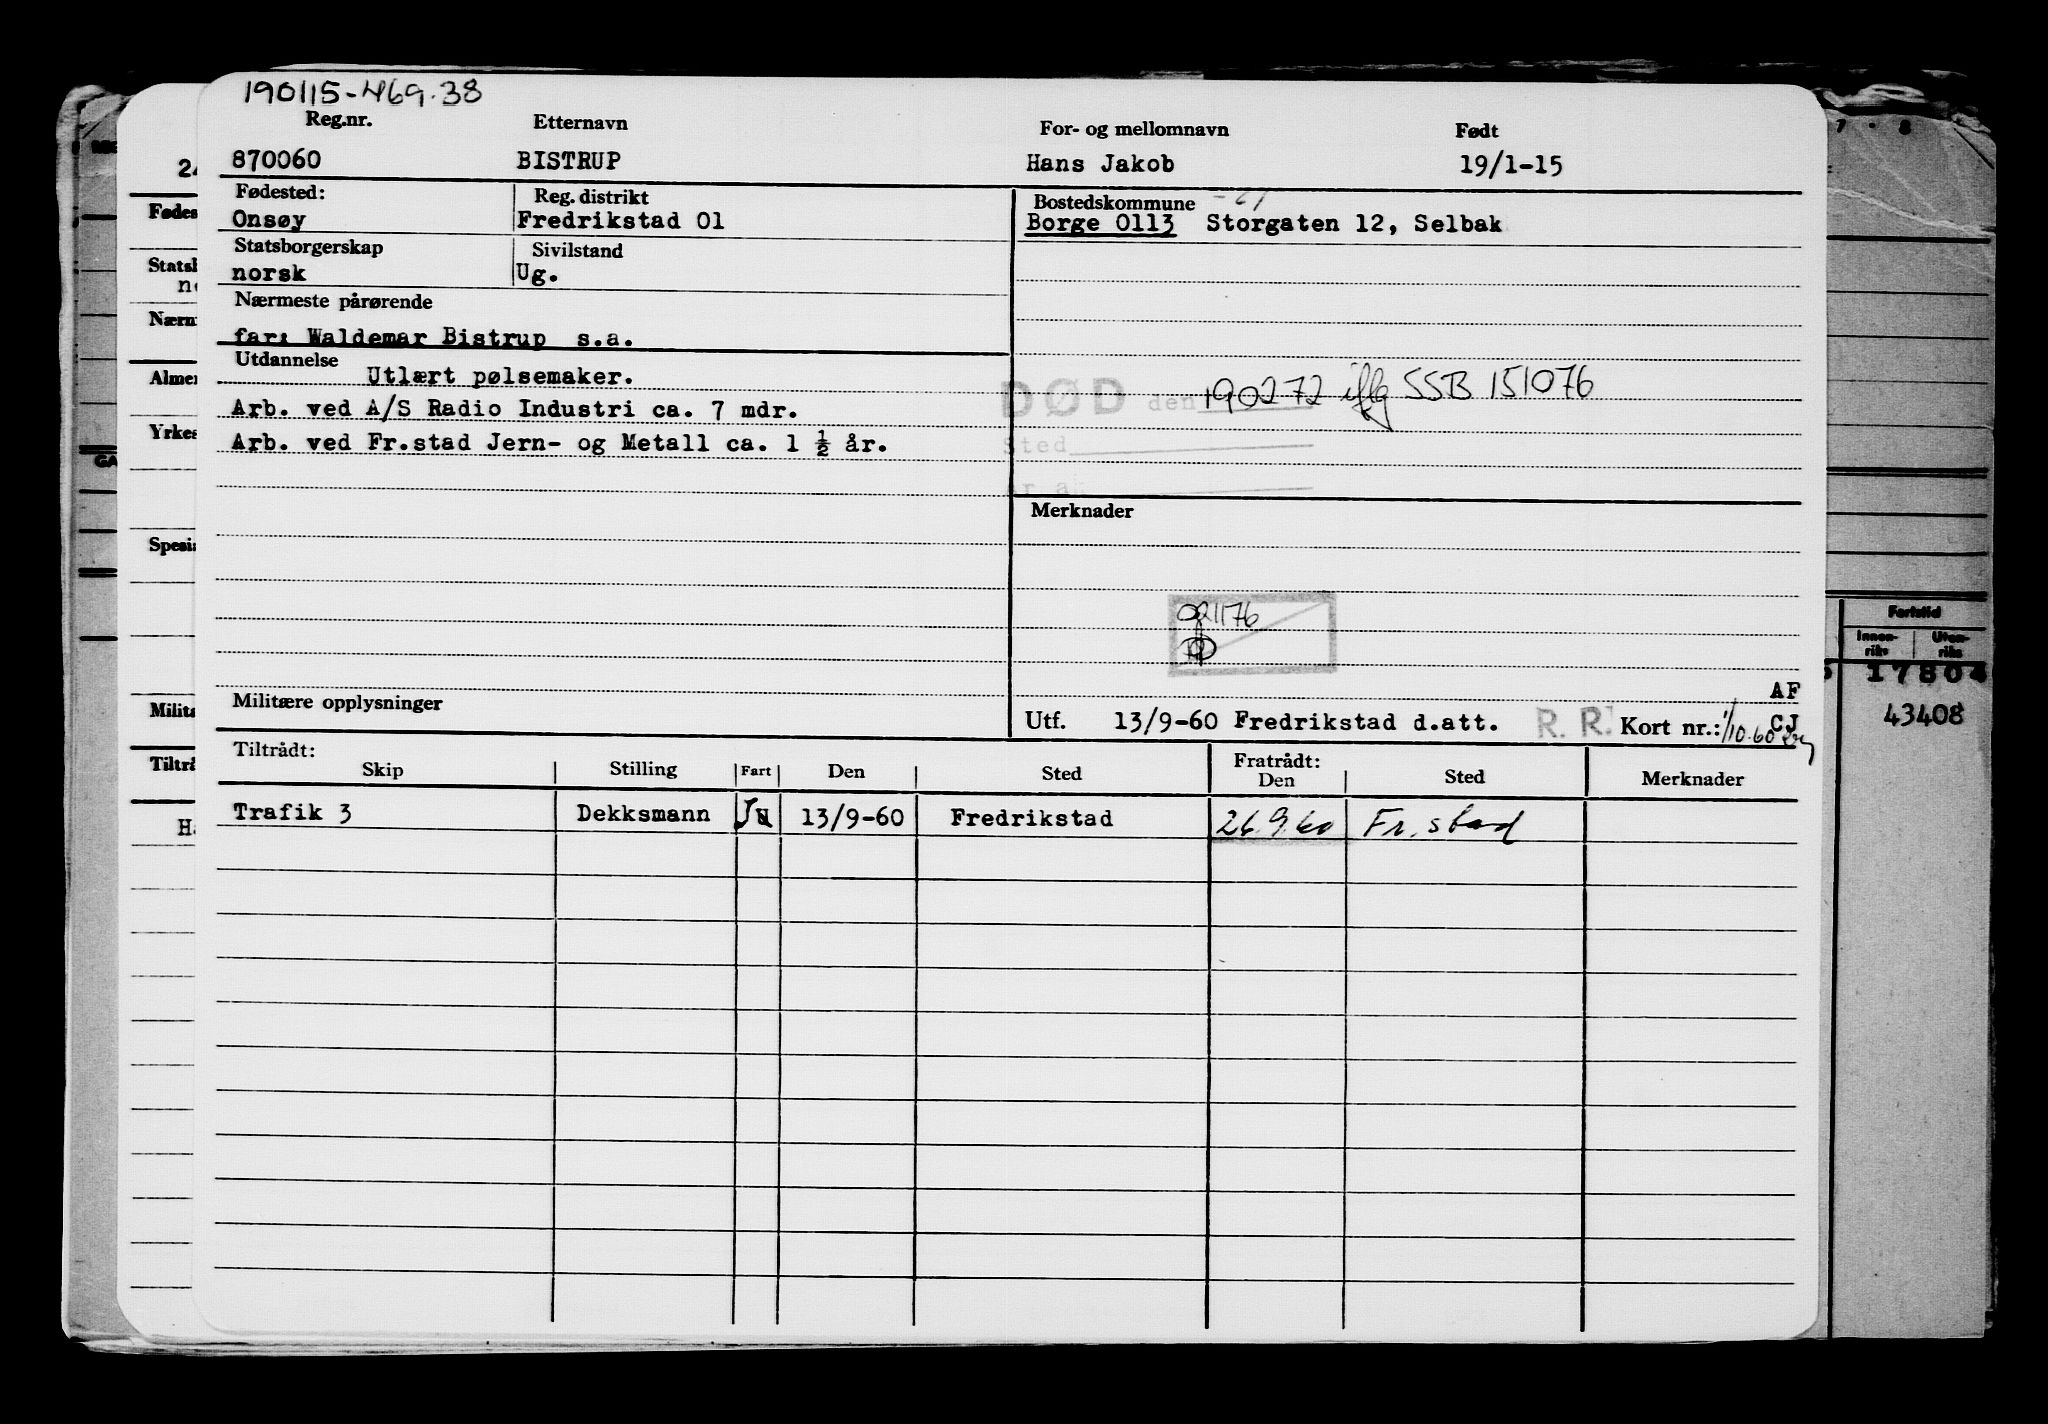 190115-469.38
Reg.nr. Etternavn For- og mellomnavn Født
870060 BISTRUP Hans Jakob 19/1-15
Fødested: Reg. distrikt Bostedskommune
Onsøy Fredrikstad 01 Borge 0113 Storgaten 12, Selbak
Statsborgerskap Sivilstand
norsk Ug.
Nærmeste pårørende
far: Waldemar Bistrup s.a.
Utdannelse
Utlært pølsemaker.
Arb. ved A/S Radio Industri ca. 7 mdr.
Arb. ved Fr.stad Jern- og Metall ca. 1 ½ år.
DØD den 190272 iflg SSB 151076
Sted
Merknader
021176
Militære opplysninger
AF
Utf. 13/9-60 Fredrikstad d.att. R. R. Kort nr.: CJ
1/10.60
Tiltrådt: Fratrådt:
Skip Stilling Fart Den Sted Den Sted Merknader
Trafik 3 Dekksmann 13/9-60 Fredrikstad 26.9.60 Fr.stad
24
Fødes
Statsl
Nærm
Almen
Yrkes
Spesia
Milita
Tiltrå
GA
7 · 8
Fartstid
Innen-riks Uten-riks
17804
43408